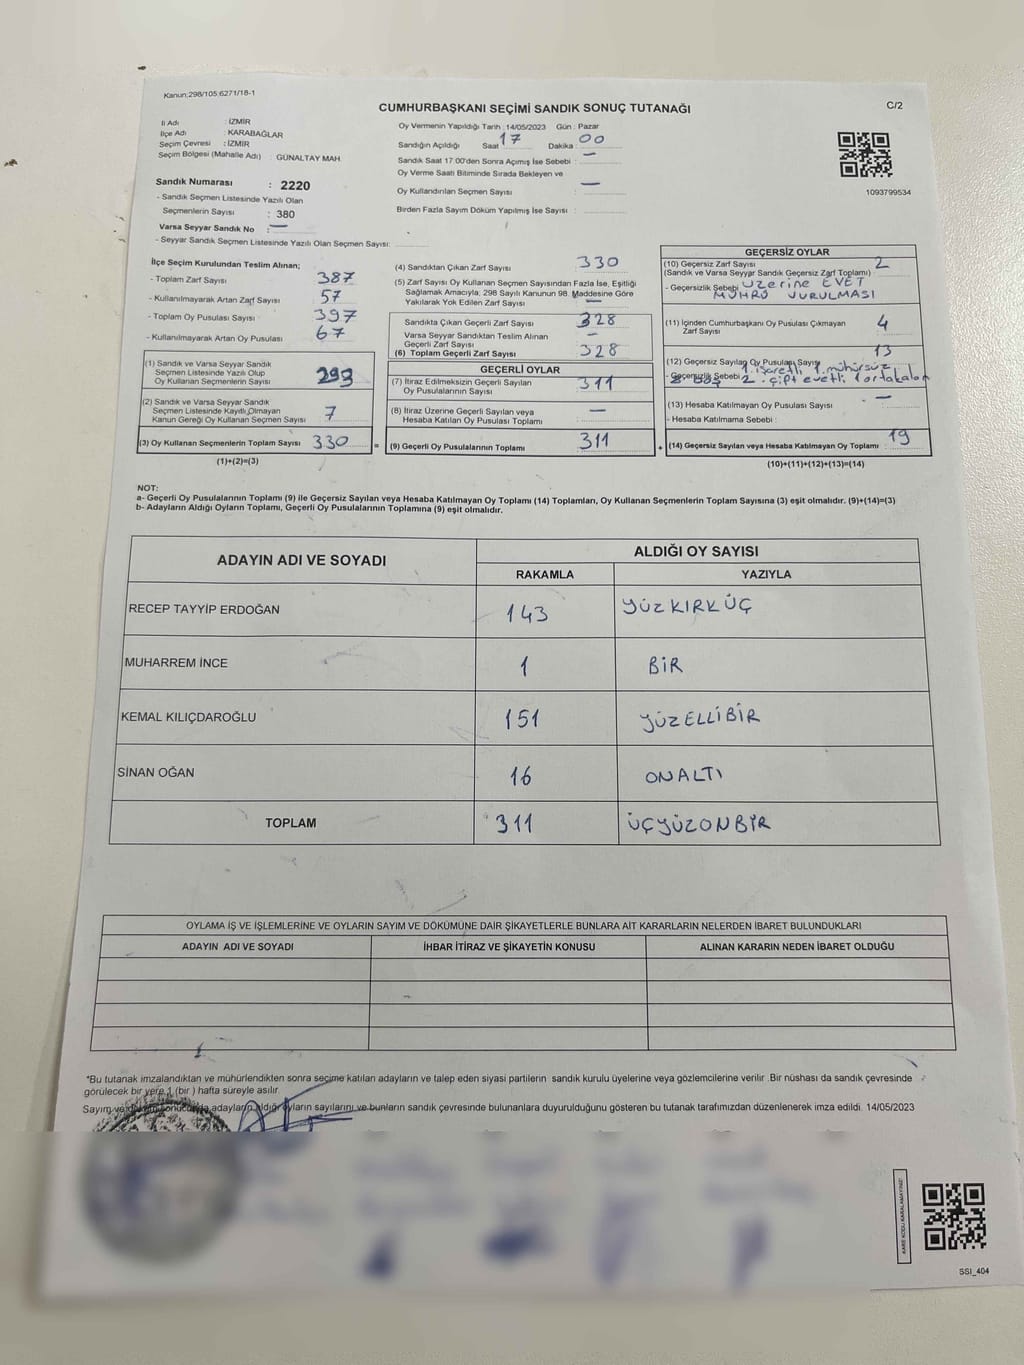 Kanun:298/105.6271/18-1
CUMHURBAŞKANI SEÇİMİ SANDIK SONUÇ TUTANAĞI
C/2
İl Adı : İZMİR
İlçe Adı : KARABAĞLAR
Seçim Çevresi : İZMİR
Seçim Bölgesi (Mahalle Adı) : GÜNALTAY MAH
Sandık Numarası : 2220
- Sandık Seçmen Listesinde Yazılı Olan
Seçmenlerin Sayısı : 380
Varsa Seyyar Sandık No : —
- Seyyar Sandık Seçmen Listesinde Yazılı Olan Seçmen Sayısı:
Oy Vermenin Yapıldığı Tarih : 14/05/2023 Gün : Pazar
Sandığın Açıldığı Saat 17 Dakika : 00
Sandık Saat 17.00'den Sonra Açımış İse Sebebi : —
Oy Verme Saati Bitiminde Sırada Bekleyen ve
Oy Kullandırılan Seçmen Sayısı : —
Birden Fazla Sayım Döküm Yapılmış İse Sayısı :
1093799534
İlçe Seçim Kurulundan Teslim Alınan;
- Toplam Zarf Sayısı : 387
- Kullanılmayarak Artan Zarf Sayısı : 57
- Toplam Oy Pusulası Sayısı : 397
- Kullanılmayarak Artan Oy Pusulası : 67
(1) Sandık ve Varsa Seyyar Sandık
Seçmen Listesinde Yazılı Olup
Oy Kullanan Seçmenlerin Sayısı :
(2) Sandık ve Varsa Seyyar Sandık
Seçmen Listesinde Kayıtlı Olmayan
Kanun Gereği Oy Kullanan Seçmen Sayısı : 7
(3) Oy Kullanan Seçmenlerin Toplam Sayısı : 330
(1)+(2)=(3)
(4) Sandıktan Çıkan Zarf Sayısı : 330
(5) Zarf Sayısı Oy Kullanan Seçmen Sayısından Fazla İse, Eşitliği
Sağlamak Amacıyla; 298 Sayılı Kanunun 98. Maddesine Göre
Yakılarak Yok Edilen Zarf Sayısı : —
Sandıkta Çıkan Geçerli Zarf Sayısı : 328
Varsa Seyyar Sandıktan Teslim Alınan
Geçerli Zarf Sayısı : —
(6) Toplam Geçerli Zarf Sayısı : 328
GEÇERLİ OYLAR
(7) İtiraz Edilmeksizin Geçerli Sayılan
Oy Pusulalarının Sayısı : 311
(8) İtiraz Üzerine Geçerli Sayılan veya
Hesaba Katılan Oy Pusulası Toplamı : —
= (9) Geçerli Oy Pusulalarının Toplamı : 311
GEÇERSİZ OYLAR
(10) Geçersiz Zarf Sayısı : 2
(Sandık ve Varsa Seyyar Sandık Geçersiz Zarf Toplamı)
- Geçersizlik Sebebi : Üzerine EVET
MÜHRÜ VURULMASI
(11) İçinden Cumhurbaşkanı Oy Pusulası Çıkmayan
Zarf Sayısı : 4
(12) Geçersiz Sayılan Oy Pusulası Sayısı : 13
1. işaretli 1. mühürsüz
- Geçersizlik Sebebi : 2. çift evetli 1 ortakalan
(13) Hesaba Katılmayan Oy Pusulası Sayısı : —
- Hesaba Katılmama Sebebi :
+ (14) Geçersiz Sayılan veya Hesaba Katılmayan Oy Toplamı : 19
(10)+(11)+(12)+(13)=(14)
NOT:
a- Geçerli Oy Pusulalarının Toplamı (9) ile Geçersiz Sayılan veya Hesaba Katılmayan Oy Toplamı (14) Toplamları, Oy Kullanan Seçmenlerin Toplam Sayısına (3) eşit olmalıdır. (9)+(14)=(3)
b- Adayların Aldığı Oyların Toplamı, Geçerli Oy Pusulalarının Toplamına (9) eşit olmalıdır.
ADAYIN ADI VE SOYADI
ALDIĞI OY SAYISI
RAKAMLA YAZIYLA
RECEP TAYYİP ERDOĞAN 143 YÜZKIRKÜÇ
MUHARREM İNCE 1 BİR
KEMAL KILIÇDAROĞLU 151 YÜZELLİBİR
SİNAN OĞAN 16 ONALTI
TOPLAM 311 ÜÇYÜZONBİR
OYLAMA İŞ VE İŞLEMLERİNE VE OYLARIN SAYIM VE DÖKÜMÜNE DAİR ŞİKAYETLERLE BUNLARA AİT KARARLARIN NELERDEN İBARET BULUNDUKLARI
ADAYIN ADI VE SOYADI İHBAR İTİRAZ VE ŞİKAYETİN KONUSU ALINAN KARARIN NEDEN İBARET OLDUĞU
*Bu tutanak imzalandıktan ve mühürlendikten sonra seçime katılan adayların ve talep eden siyasi partilerin sandık kurulu üyelerine veya gözlemcilerine verilir .Bir nüshası da sandık çevresinde
görülecek bir yere 1 (bir ) hafta süreyle asılır.
Sayım ve döküm sonucunda adayların aldığı oyların sayılarını ve bunların sandık çevresinde bulunanlara duyurulduğunu gösteren bu tutanak tarafımızdan düzenlenerek imza edildi. 14/05/2023
KARE KODU KARALAMAYINIZ!
SSI_404